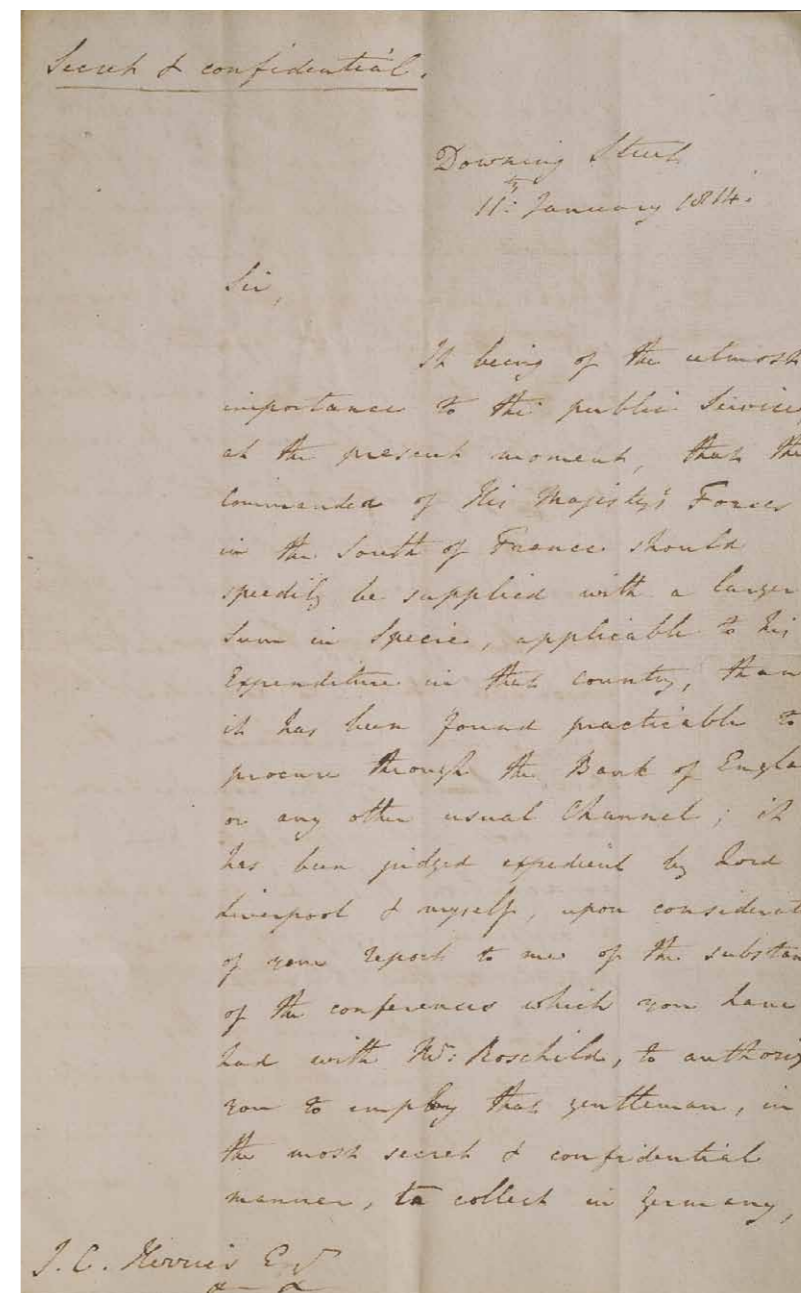 Secret & confidential.
Downing Street
11th January 1814.
Sir,
It being of the utmost
importance to the public Service,
at the present moment, that the
Commander of His Majesty's Forces
in the South of France should
speedily be supplied with a larger
Sum in Specie, applicable to his
Expenditure in that country, than
it has been found practicable to
procure through the Bank of Engla
or any other usual Channel; it
has been judged expedient by Lord
Liverpool & myself, upon considerat
of your report to me of the substan
of the conferences which you have
had with Mr: Roschild, to authoriz
you to employ that gentleman, in
the most secret & confidential
manner, to collect in Germany,
J. C. Herries Esqr